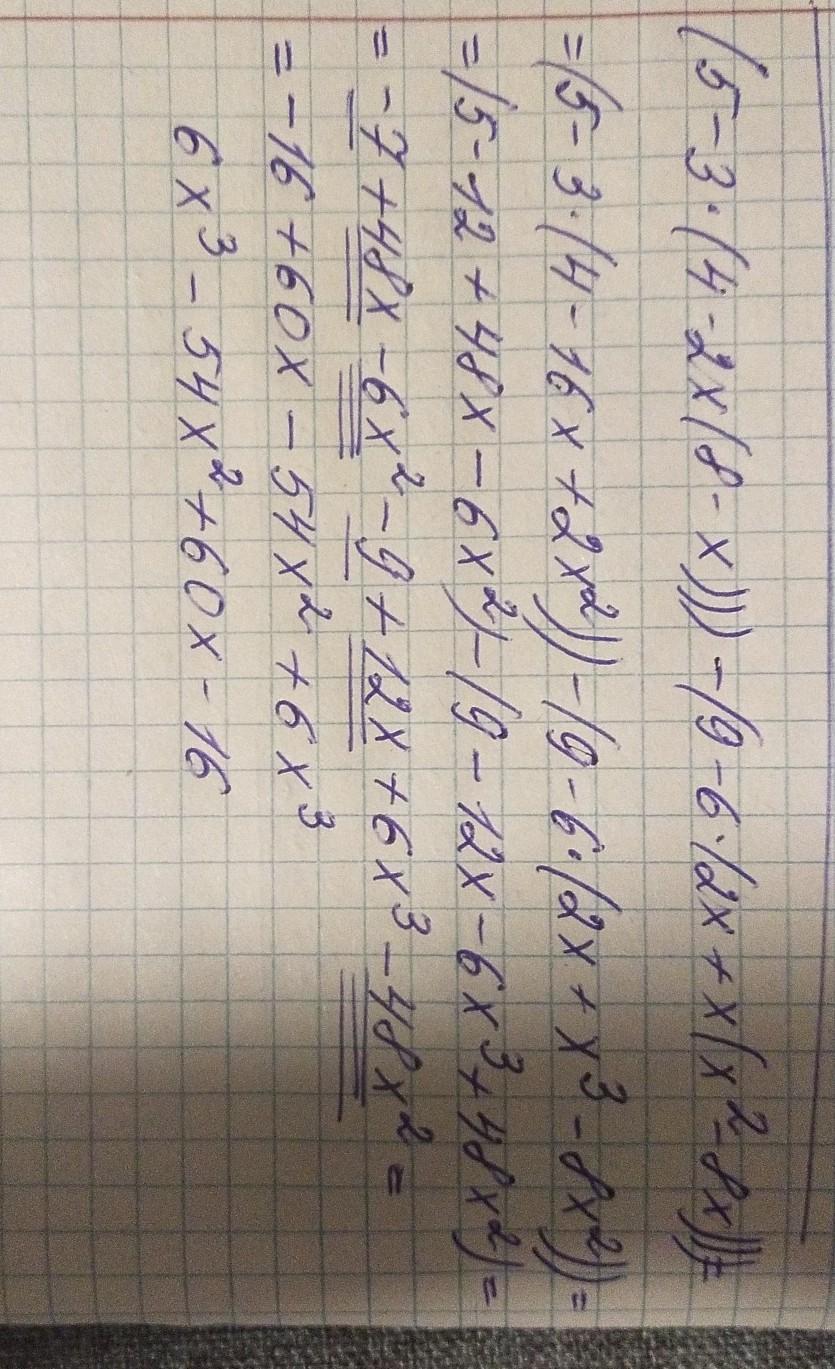 (5-3·(4-2x(8-x)))-(9-6·(2x+x(x²-8x)))=
=(5-3·(4-16x+2x²))-(9-6·(2x+x³-8x²))=
=(5-12+48x-6x²)-(9-12x-6x³+48x²)=
=-7+48x-6x²-9+12x+6x³-48x²=
=-16+60x-54x²+6x³
6x³-54x²+60x-16